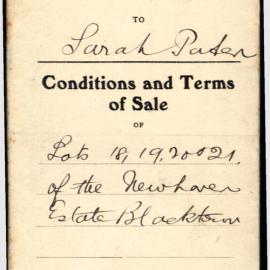 TO
Sarah Paten
Conditions and Terms
of Sale
OF
Lots 18, 19, 20 & 21.
of the Newhaven
Estate Blacktown